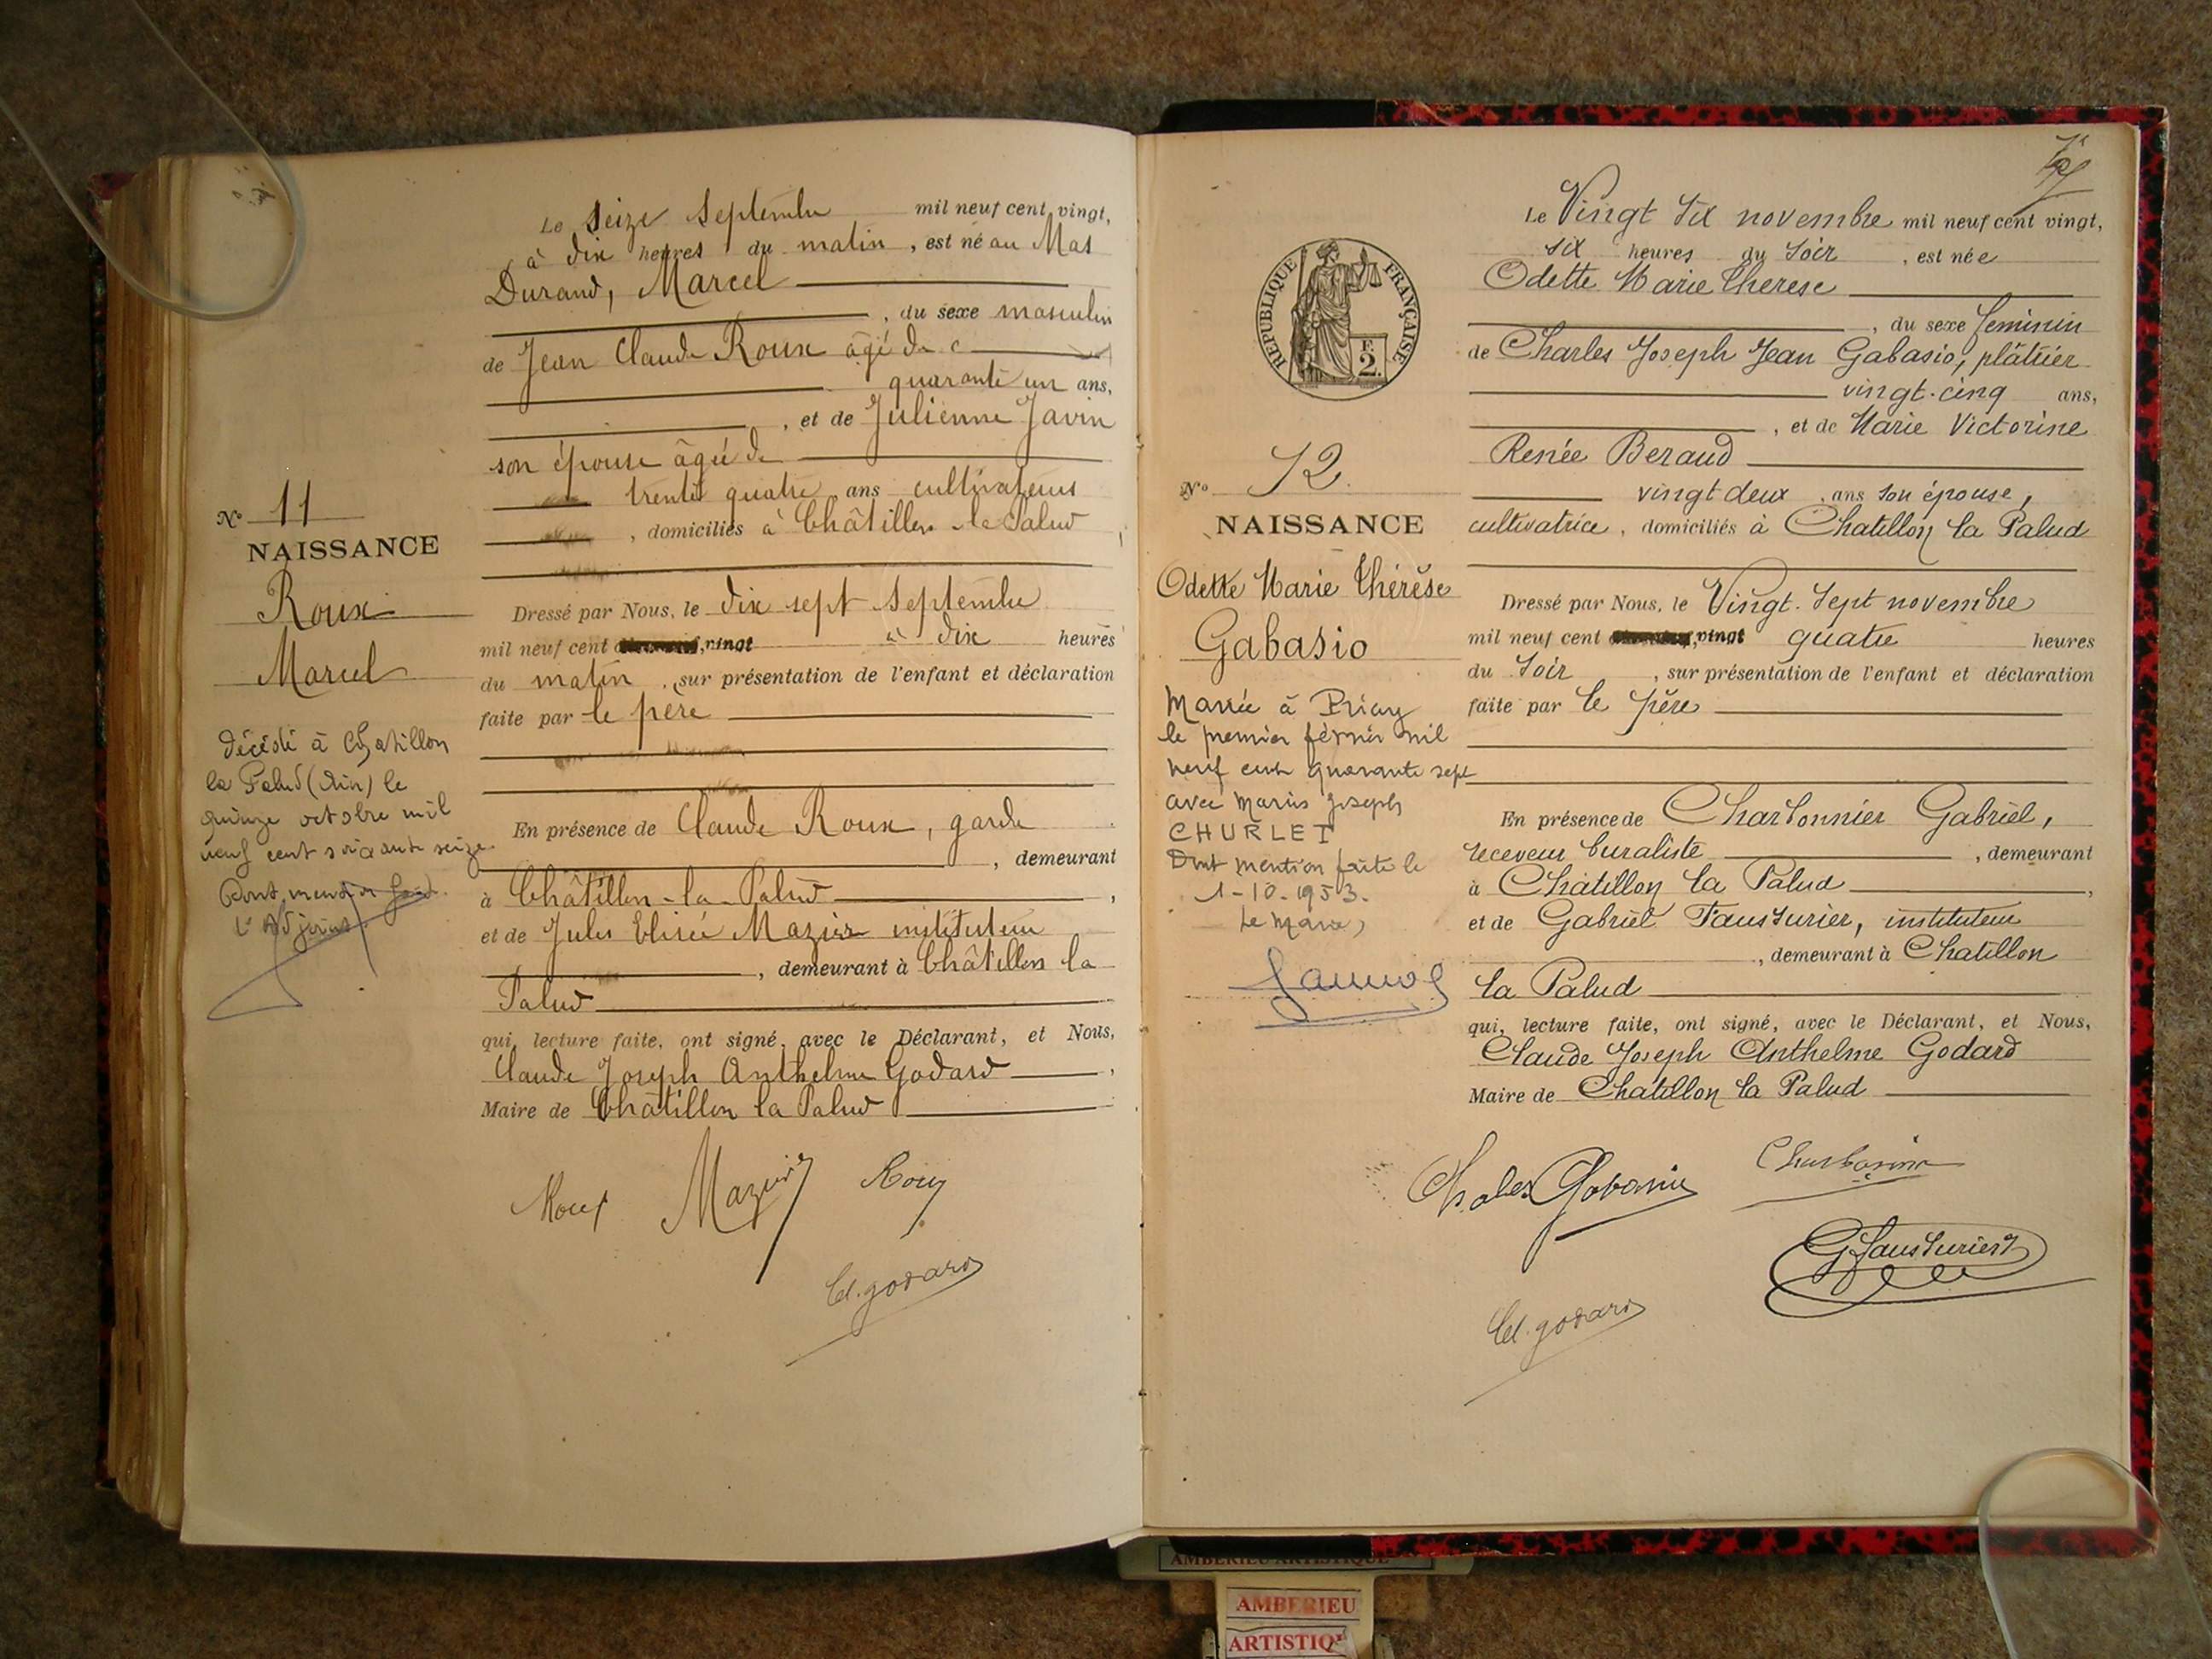 Le Seize Septembre mil neuf cent vingt,
à dix heures du matin, est né au Mas
Durand, Marcel
, du sexe masculin
de Jean Claude Roux âgé de
quarante un ans,
, et de Julienne Javin
son épouse âgée de
trente quatre ans cultivateurs
, domiciliés à Châtillon-la-Palud
Dressé par Nous, le dix sept Septembre
mil neuf cent vingt à dix heures
du matin, sur présentation de l'enfant et déclaration
faite par le père
En présence de Claude Roux, garde
, demeurant
à Châtillon-la-Palud,
et de Jules Elisée Mazier instituteur
, demeurant à Châtillon la
Palud
qui, lecture faite, ont signé, avec le Déclarant, et Nous,
Claude Joseph Anthelme Godard,
Maire de Châtillon la Palud
Roux Mazier Roux
Cl. godard
N° 11
NAISSANCE
Roux
Marcel
Décédé à Chatillon
la Palud (Ain) le
quinze octobre mil
neuf cent soixante seize
Dont mention
L'Adjoint
Le Vingt Six novembre mil neuf cent vingt,
six heures du Soir, est née
Odette Marie Therese
, du sexe feminin
de Charles Joseph Jean Gabasio, plâtrier
vingt-cinq ans,
, et de Marie Victorine
Renée Beraud
vingt deux, ans son épouse,
cultivatrice, domiciliés à Chatillon la Palud
Dressé par Nous, le Vingt-Sept novembre
mil neuf cent vingt quatre heures
du Soir, sur présentation de l'enfant et déclaration
faite par le père
En présence de Charbonnier Gabriel,
receveur buraliste, demeurant
à Châtillon la Palud,
et de Gabriel Fausturier, instituteur
, demeurant à Chatillon
la Palud
qui, lecture faite, ont signé, avec le Déclarant, et Nous,
Claude Joseph Anthelme Godard
Maire de Chatillon la Palud
Charles Gabasio Charbonnier
G Fausturier
Cl. godard
RÉPUBLIQUE FRANÇAISE
F.
2.
N° 12.
NAISSANCE
Odette Marie Thérèse
Gabasio
Mariée à Priay
le premier février mil
neuf cent quarante sept
avec Marius Joseph
CHURLET
Dont mention faite le
1-10-1953.
Le Maire,
AMBERIEU ARTISTIQUE
AMBERIEU
ARTISTIQ